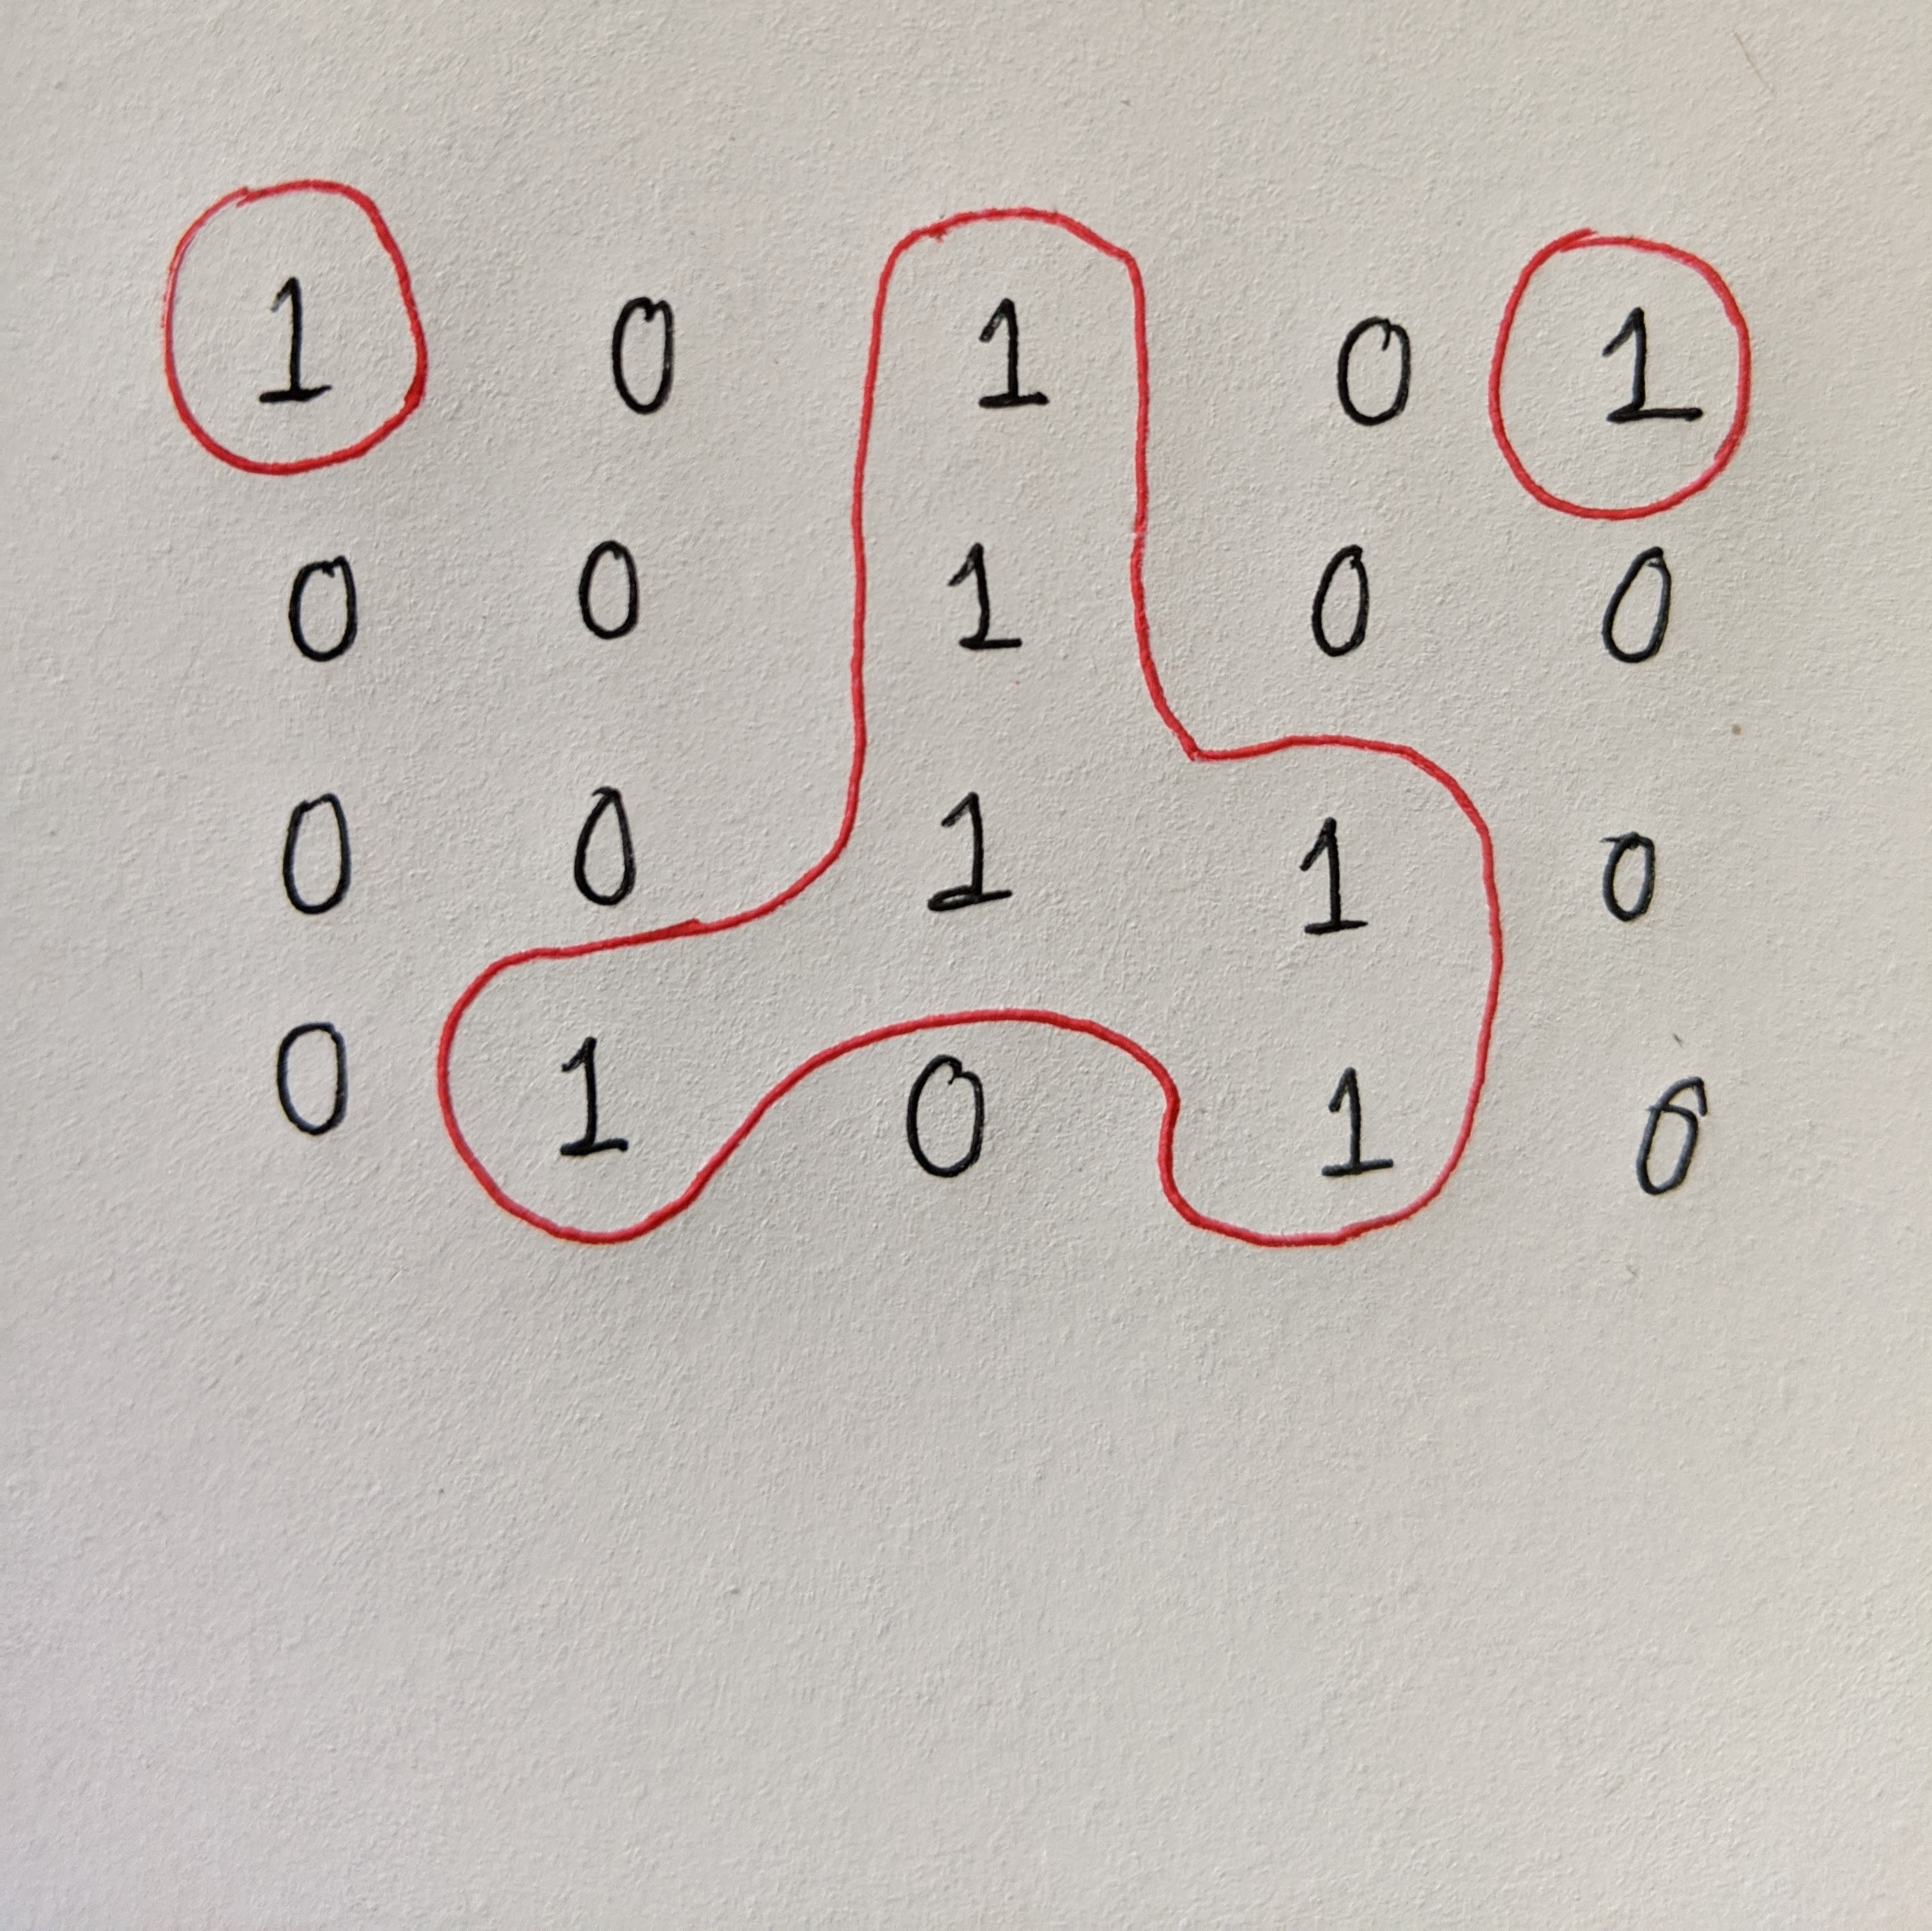 1 0 1 0 1
0 0 1 0 0
0 0 1 1 0
0 1 0 1 0